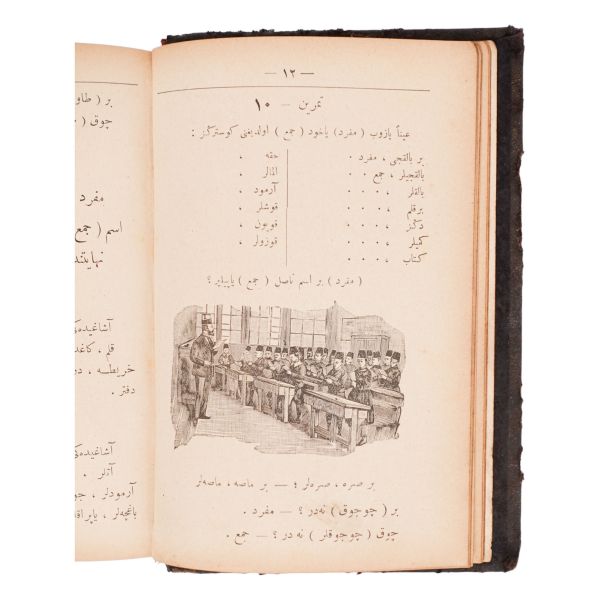 — ١٢ —
تمرین — ١٠
عیناً یازوب ( مفرد ) یاخود ( جمع ) اولدیغنی کوسترکز :
بر بالقجی ، مفرد .
حقه ،
بالقجیلر ، جمع .
المالر ،
بالقلر ، . . .
آرمود ،
برقلم ، . . .
قوشلر ،
دکز ، . . .
قویون ،
کمیلر ، . . .
قوزولر ،
کتاب ، . . .
( مفرد ) بر اسم ناصل ( جمع ) یاپیلیر ؟
بر صره ، صره‌لر ؛ — بر ماصه ، ماصه‌لر
بر ( چوجوق ) نه‌در ؟ — مفرد .
چوق ( چوجوقلر ) نه‌در ؟ — جمع .
بر ( طاو
چوق (
مفرد
اسم ( جمع
نهایتند
آشاغیده‌کی
قلم ، کاغد
خریطه ، دو
دفتر .
آشاغیده‌کی
آتلر .
آرمودلر ، جو
باغچه‌لر ، یاپراق